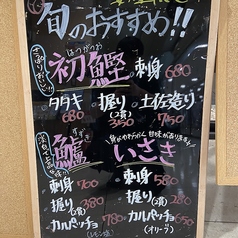 旬のおすすめ!!
はつがつお
初鰹 刺身 680
タタキ 680 握り(2貫) 350 土佐造り 750
すずき
鱸
刺身 700
握り(2貫) 380
カルパッチョ 780
(レモン味)
身がやわらかく、甘味があります!
いさき
刺身 580
握り(2貫) 280
カルパッチョ 650
(オリーブ)